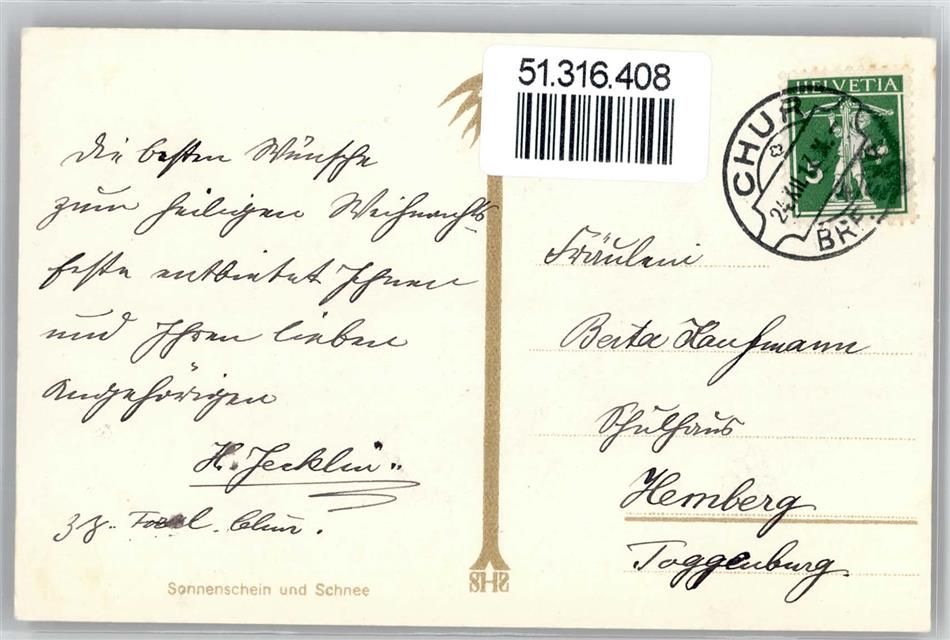 51.316.408
HELVETIA
CHUR
BRF.
Die besten Wünsche
zum heiligen Weihnachts-
feste entbietet Ihnen
und Ihren lieben
Angehörigen
H. Jecklin
Chur.
Fräulein
Berta Kaufmann
Schulhaus
Hemberg
Toggenburg.
Sonnenschein und Schnee